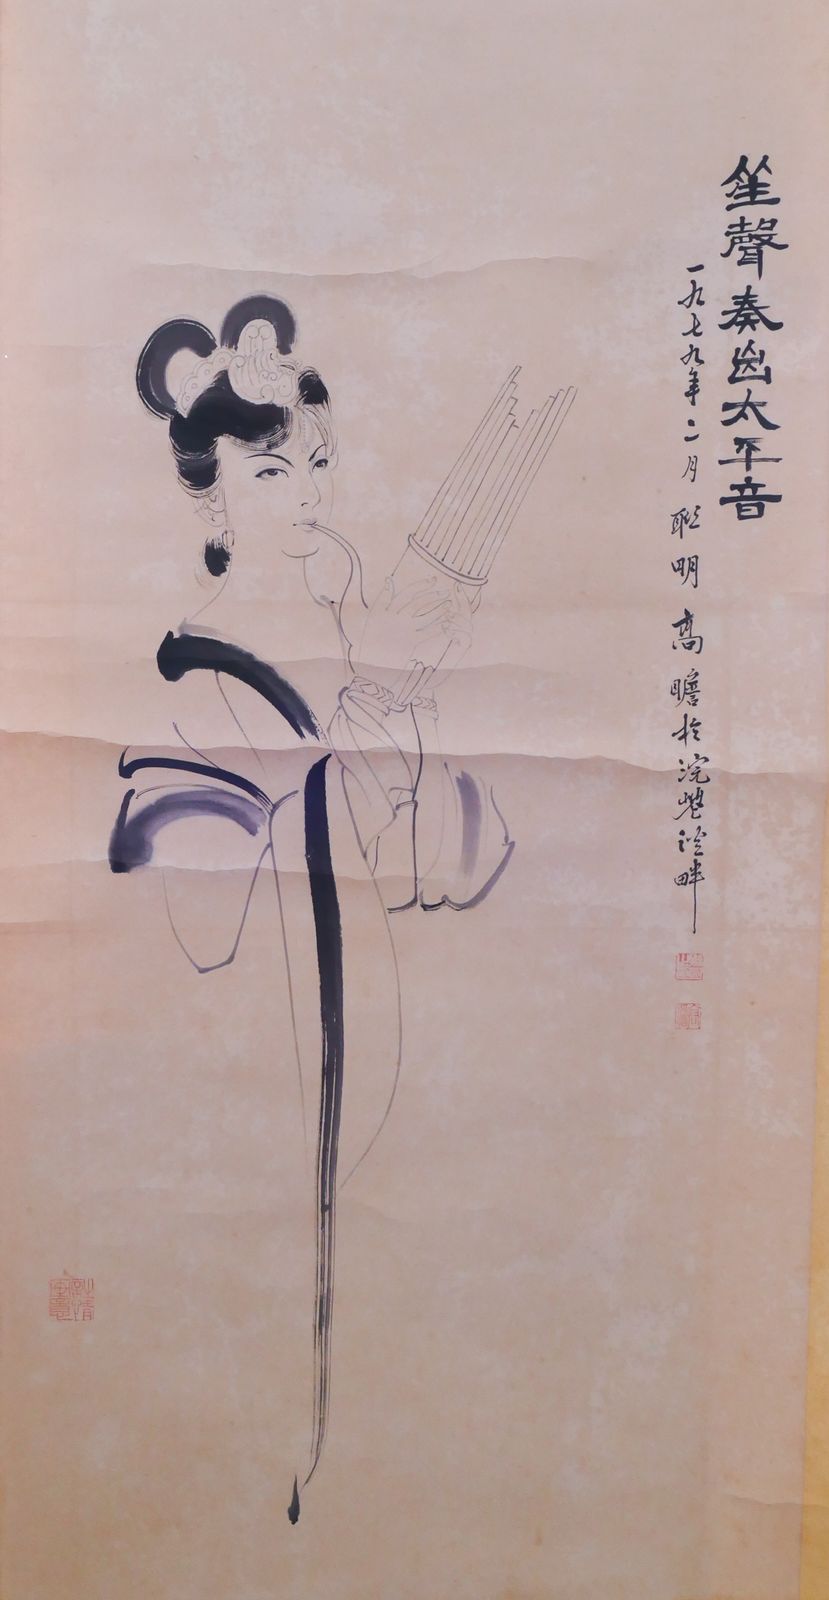 笙聲奏出太平音
一九七九年二月 聪明 高瞻於浣 畔